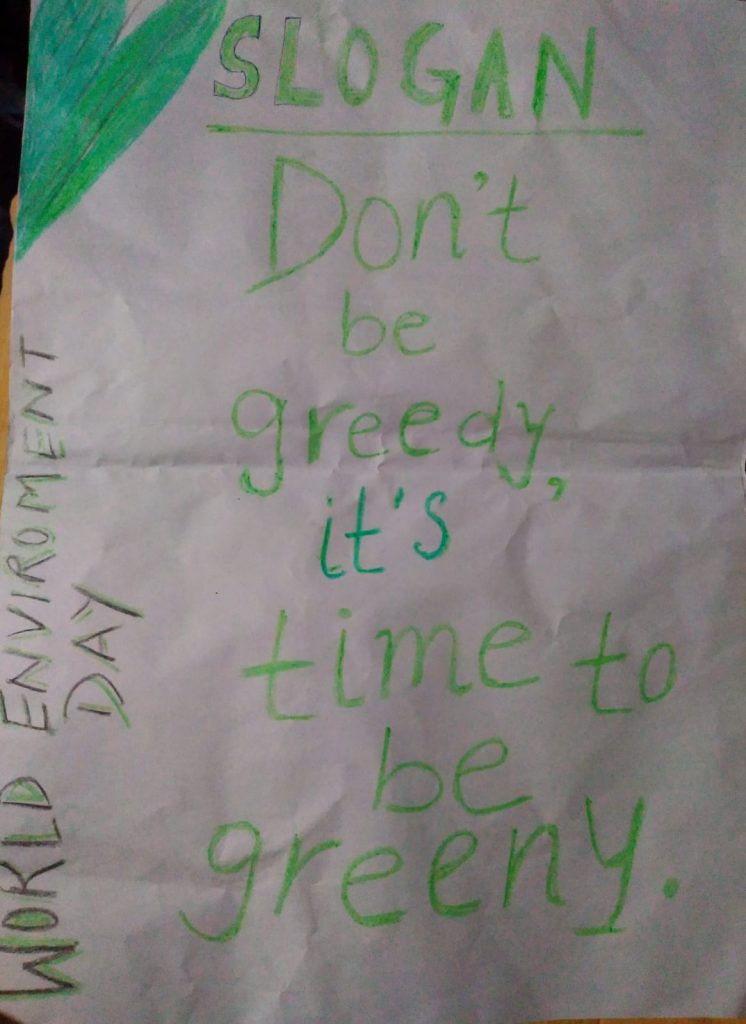 SLOGAN
Don't
be
greedy,
it's
time to
be
greeny.
WORLD ENVIROMENT
DAY